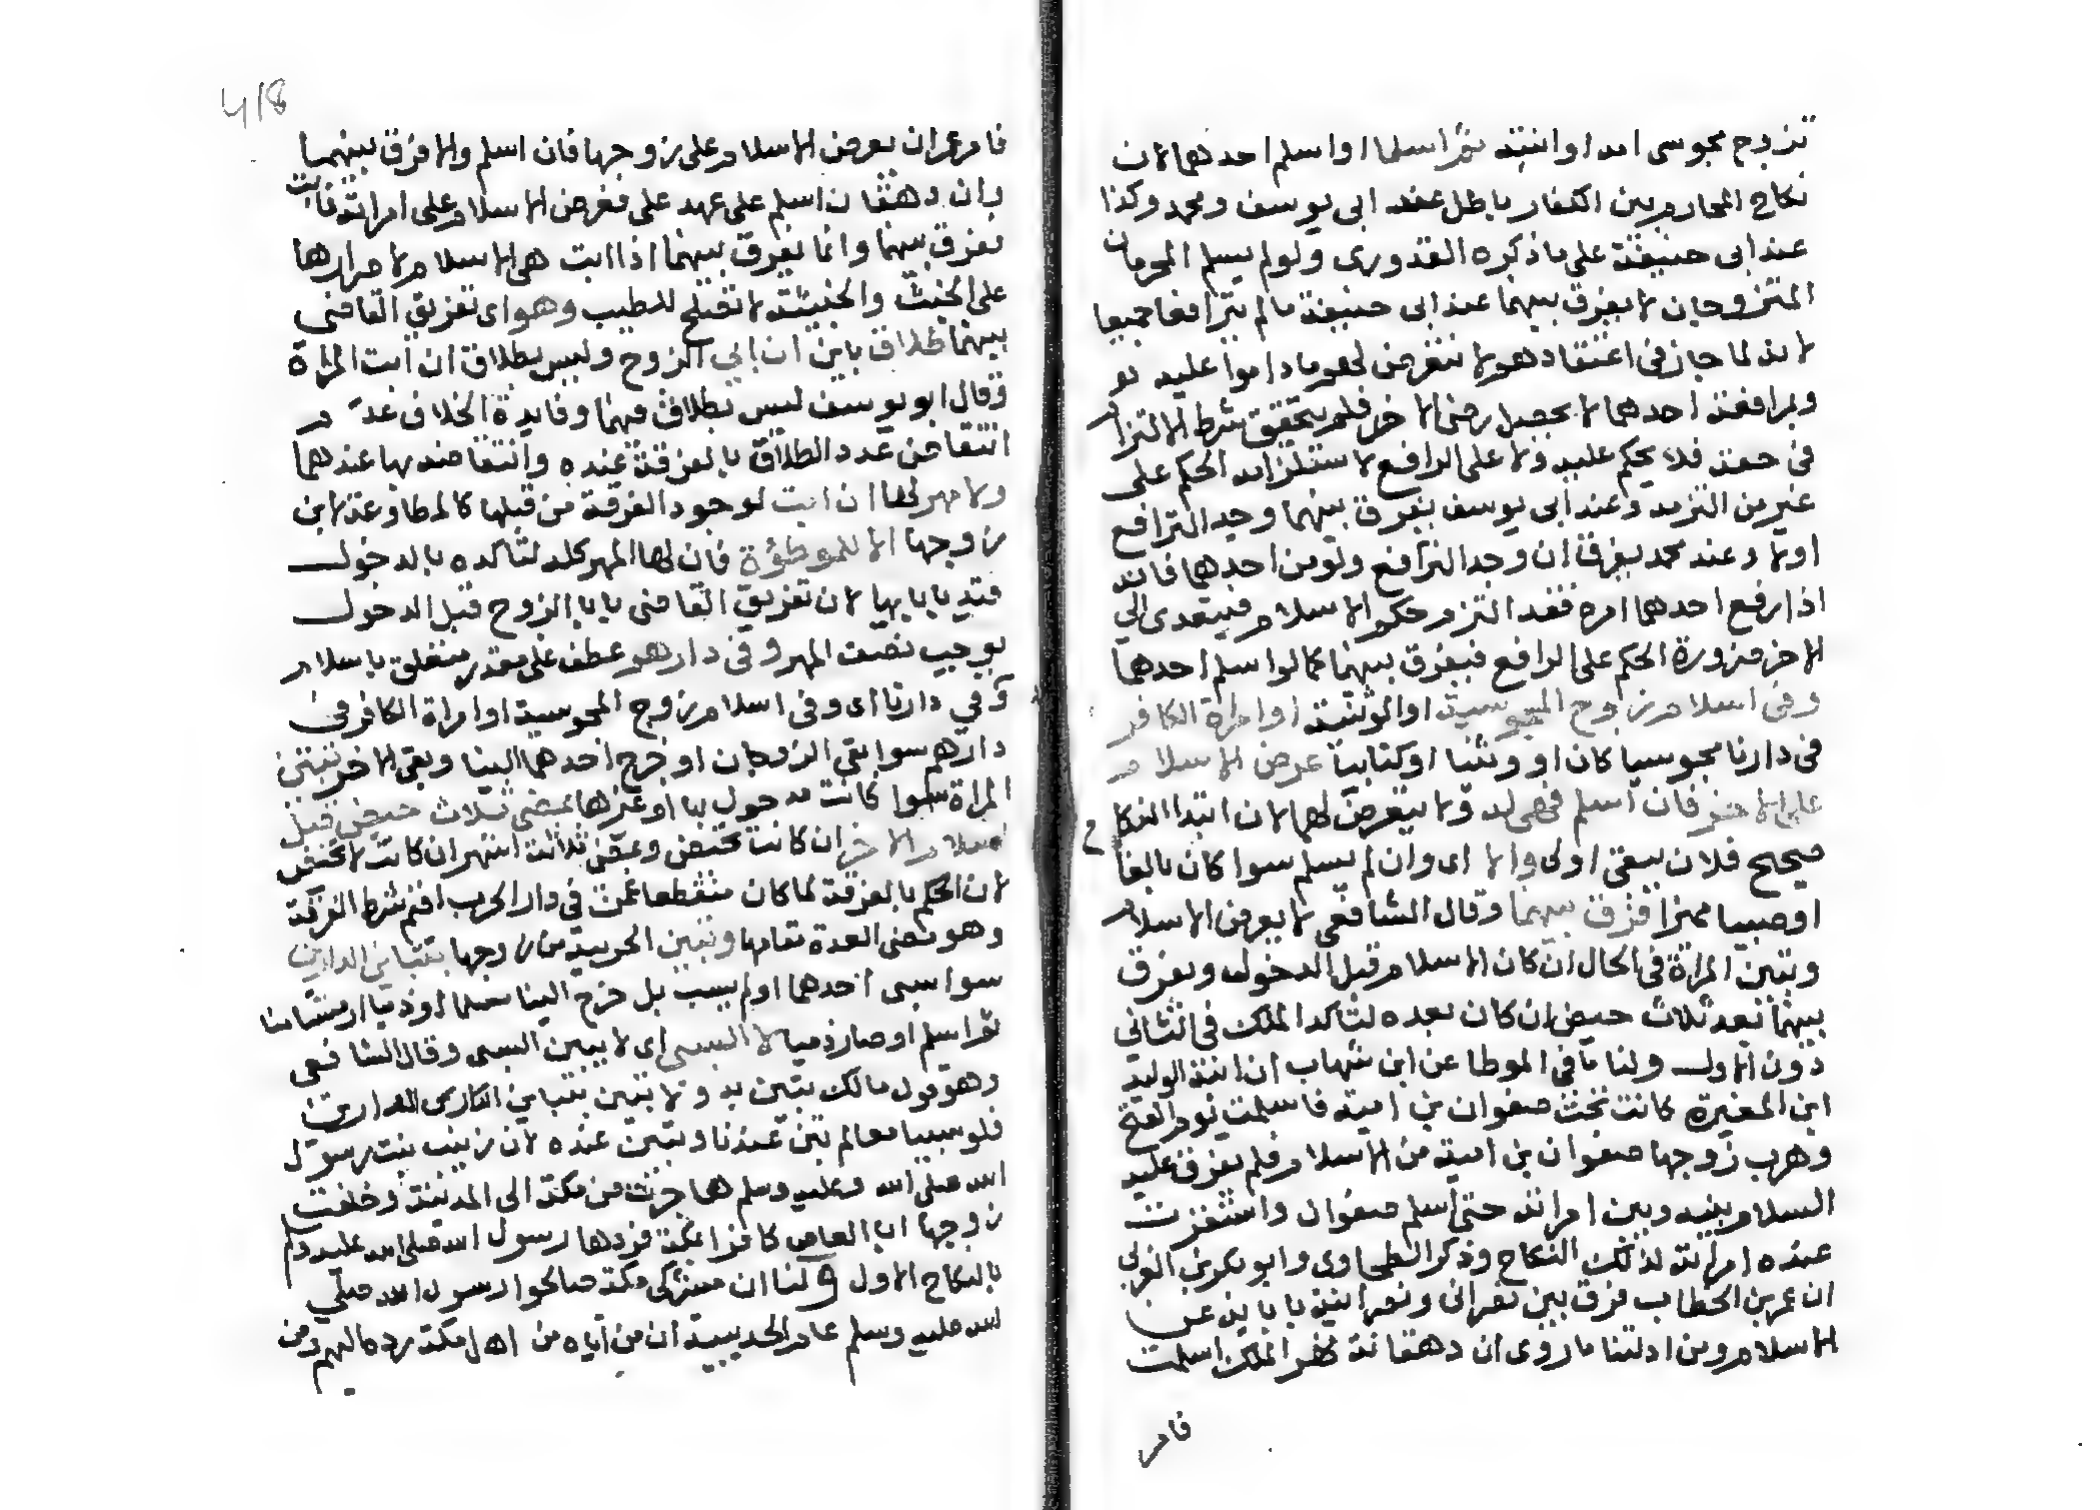 تزوج مجوسى امه او ابنته ثم اسلما او اسلم احدهما لان
نكاح المحارم بين الكفار باطل عند ابى يوسف ومحمد وكذا
عند ابى حنيفة على ما ذكره القدورى ولو لم يسلم المحرمان
المتزوجان لا يفرق بينهما عند ابى حنيفة ما لم يترافعا جميعا
لانه لما جاز فى اعتقادهم لا نتعرض لهم ما داموا عليه
وبمرافعة احدهما لا يحصل رضى الاخر فلم يتحقق شرط الالتزام
فى حقه فلا يحكم عليه ولا على الرافع لاستلزامه الحكم على
غير من التزمه وعند ابى يوسف يفرق بينهما وجد الترافع
اولا وعند محمد يفرق ان وجد الترافع ولو من احدهما فانه
اذا رفع احدهما امره فقد التزم حكم الاسلام فيتعدى الى
الاخر ضرورة الحكم على الرافع فيفرق بينهما كما لو اسلم احدهما
وفى اسلام زوج المجوسية او الوثنية او امراة الكافر
فى دارنا مجوسيا كان او وثنيا او كتابيا عرض الاسلام
على الاخر فان اسلم فهى له ولا يتعرض لهما لان ابتدا النكاح
صحيح فلان يبقى اولى والا اى وان لم يسلم سوا كان بالغا
او صبيا مميزا فرق بينهما وقال الشافعى لا يعرض الاسلام
وتبين المراة فى الحال ان كان الاسلام قبل الدخول ويفرق
بينهما بعد ثلاث حيض ان كان بعده لتاكد الملك فى الثانى
دون الاول ولنا ما فى الموطا عن ابن شهاب ان ابنة الوليد
ابن المغيرة كانت تحت صفوان بن امية فاسلمت يوم الفتح
وهرب زوجها صفوان بن امية من الاسلام فلم يفرق عليه
السلام بينه وبين امراته حتى اسلم صفوان واستقرت
عنده امراته لذلك النكاح وذكر الطحاوى وابو بكر بن العربى
ان عمر بن الخطاب فرق بين نصرانى ونصرانية بابايه عن
الاسلام ومن ادلتنا ما روى ان دهقانة نهر الملك اسلمت
فامر
418
فامر عمر ان يعرض الاسلام على زوجها فان اسلم والا فرق بينهما
وان دهقانا اسلم على عهد على فعرض الاسلام على امراته فابت
ففرق بينهما وانما يفرق بينهما اذا ابت هى الاسلام لاصرارها
على الخبث والخبيثة لا تصلح للطيب وهو اى تفريق القاضى
بينهما طلاق باين ان ابى الزوج وليس بطلاق ان ابت المراة
وقال ابو يوسف ليس بطلاق فيهما وفايدة الخلاف عدم
انتقاض عدد الطلاق بالفرقة عنده وانتقاضه بها عندهما
ولا مهر لها ان ابت لوجود الفرقة من قبلها كالمطاوعة لابن
زوجها الا للموطوءة فان لها المهر كله لتاكده بالدخول
قيد بابايها لان تفريق القاضى بابا الزوج قبل الدخول
يوجب نصف المهر وفى دارهم عطف على مقدر متعلق باسلام
وفي دارنا اى وفى اسلام زوج المجوسية او امراة الكافر فى
دارهم سوا بقى الزوجان او خرج احدهما الينا وبقى الاخر تبين
المراة سوا كانت مدخول بها او غيرها بمضى ثلاث حيض قبل
اسلام الاخر ان كانت تحيض وبمضى ثلاثة اشهر ان كانت لا تحيض
لان الحكم بالفرقة لما كان منقطعا عمن فى دار الحرب اقيم شرط الفرقة
وهو مضى العدة مقامها وتبين الحربية من زوجها بتباين الدارين
سوا سبى احدهما او لم يسب بل خرج الينا مسلما او ذميا او مستامنا
ثم اسلم او صار ذميا لا السبى اى لا يبين السبى وقال الشافعى
وهو قول مالك تبين به ولا تبين بتباين الدارين
فلو سبيا معا لم تبن عندنا وتبين عنده لان زينب بنت رسول
الله صلى الله وعليه وسلم هاجرت من مكة الى المدينة وخلفت
زوجها ابا العاص كافرا بمكة فردها رسول الله صلى الله عليه وسلم
بالنكاح الاول ولنا ان مشركى مكة صالحوا رسول الله صلى
الله عليه وسلم عام الحديبية ان من اتاه من اهل مكة رده اليهم ومن